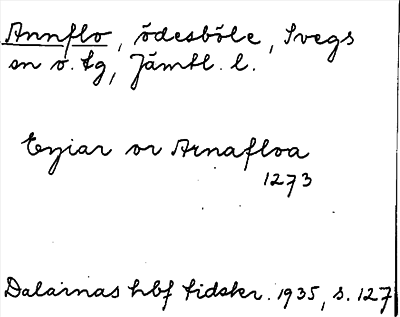 Annflo, ödesböle, Svegs
sn o. tg, Jämtl. l.
Eyiar or Arnafloa
1273
Dalarnas hbf tidskr. 1935, s. 127